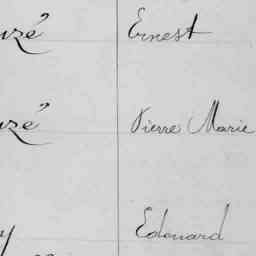 uzé Ernest
uzé Pierre Marie
y Edouard